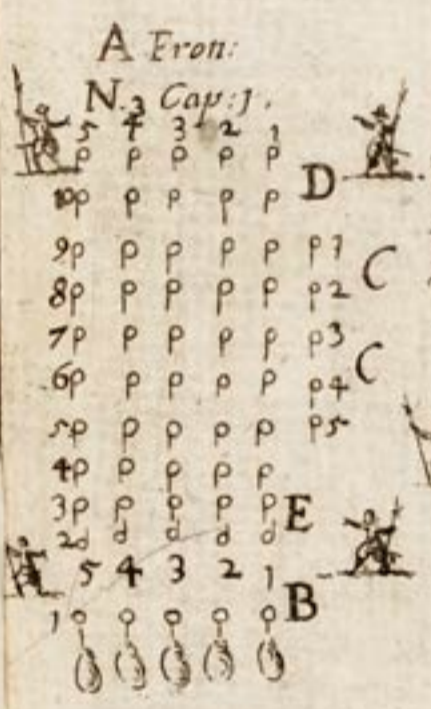 A Fron:
N.3 Cap:1.
5 4 3 2 1
p p p p p
D
10p p p p p
9p p p p p p1
C
8p p p p p p2
7p p p p p p3
C
6p p p p p p4
5p p p p p p5
4p p p p p
3p p p p p E
2d d d d d
5 4 3 2 1
B
1 o o o o o